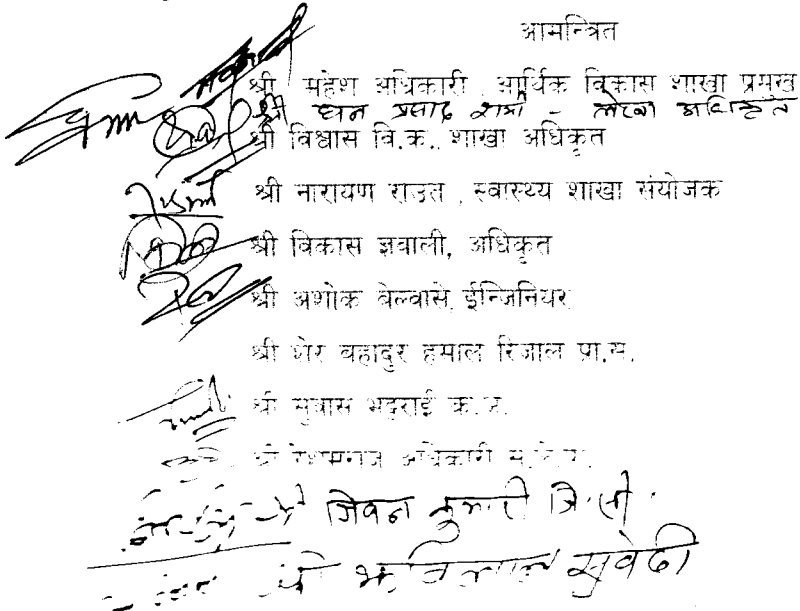 आमन्त्रित
श्री महेश अधिकारी, आर्थिक विकास शाखा प्रमुख
श्री धन प्रसाद शर्मा - लेखा अधिकृत
श्री विश्वास वि.क., शाखा अधिकृत
श्री नारायण राउत, स्वास्थ्य शाखा संयोजक
श्री विकास ज्ञवाली, अधिकृत
श्री अशोक वेल्वासे, ईन्जिनियर
श्री शेर बहादुर हमाल रिजाल प्रा.स.
श्री सुवास भट्टराई क.अ.
श्री रेशमराज अधिकारी
श्री जिवन कुमारी जि.सी.
श्री सुवेदी